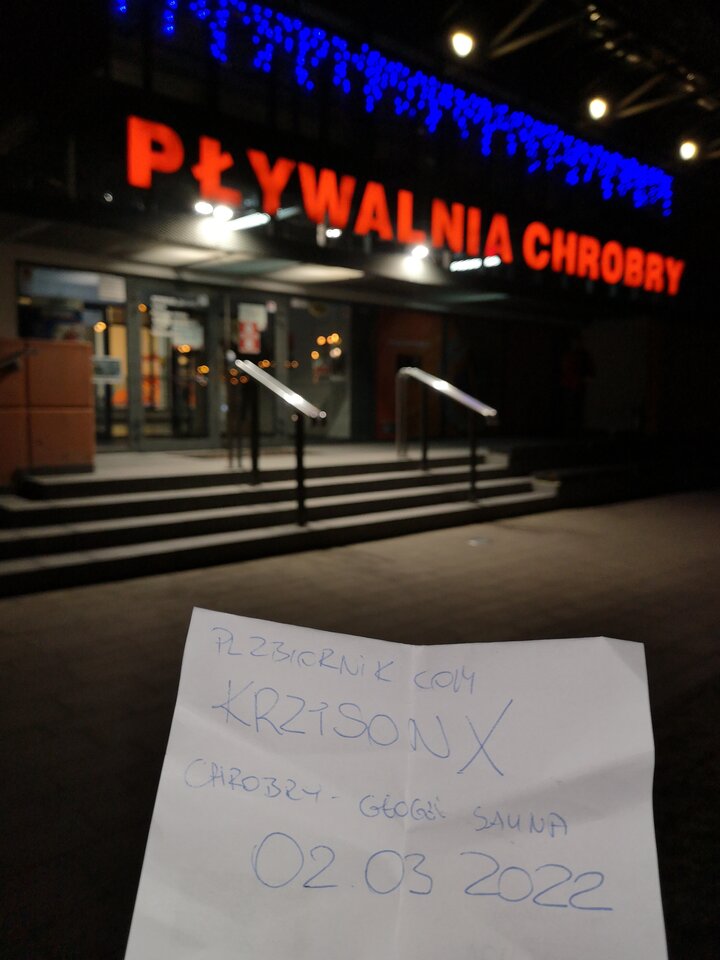 PŁYWALNIA CHROBRY
PL ZBIORNIK COM
KRZISONX
CHROBRY - GŁOGÓW SAUNA
02.03 2022